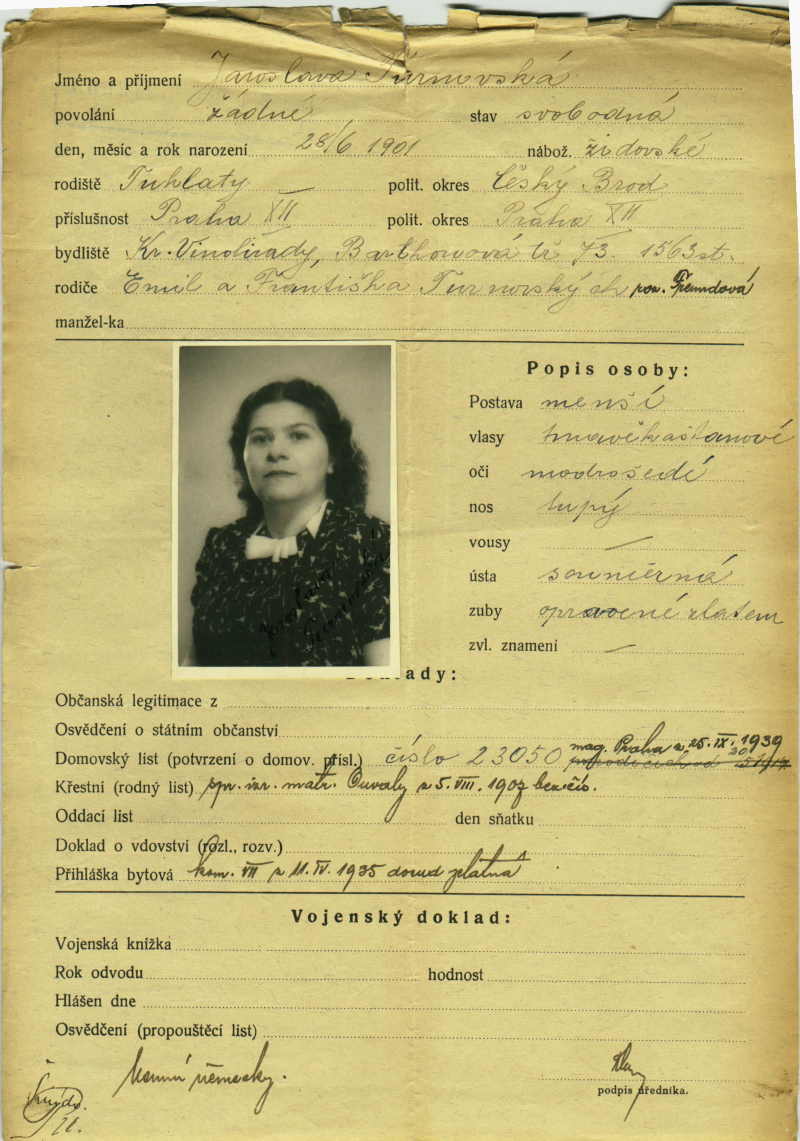 Jméno a příjmení Jaroslava Turnovská
povolání žádné stav svobodná
den, měsíc a rok narození 28/6 1901 nábož. židovské
rodiště Tuhlaty polit. okres Český Brod
příslušnost Praha XII polit. okres Praha XII
bydliště Kr. Vinohrady, Barthouova tř 73. 1563 st.
rodiče Emil a Františka Turnovských roz. Freundová
manžel-ka
Popis osoby:
Postava menší
vlasy tmavěkaštanové
oči modrošedé
nos tupý
vousy —
ústa souměrná
zuby opravené zlatem
zvl. znamení —
Jaroslava
Turnovská
Doklady:
Občanská legitimace z
Osvědčení o státním občanství
Domovský list (potvrzení o domov. přísl.) číslo 23050 mag. Praha z 25. IX. 1939
Křestní (rodný list) izr. matr. Ouvaly z 5. VIII. 1907 bez čís.
Oddací list den sňatku
Doklad o vdovství (rozl., rozv.)
Přihláška bytová kom. VII z 11. IV. 1935 dosud platná
Vojenský doklad:
Vojenská knížka
Rok odvodu hodnost
Hlášen dne
Osvědčení (propouštěcí list)
německy.
podpis úředníka.